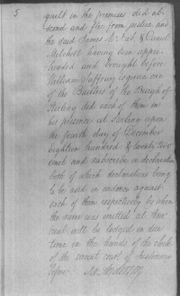 5
guilt in the premises did ab-
scond and flee from justice, and
the said James & Daniel
Mitchell having been appre-
hended and brought before
William Jaffray Esquire one
of the Baillies of the Burgh of
Stirling did each of them in
his presence at Stirling upon
the fourth day of December
eighteen hundred & twenty two
emit and subscribe a declaration
both of which declarations being
to be used in evidence against
each of them respectively by whom
the same was emitted at their
trial will be lodged in due
time in the hands of the clerk
of the circuit court of Justiciary
before